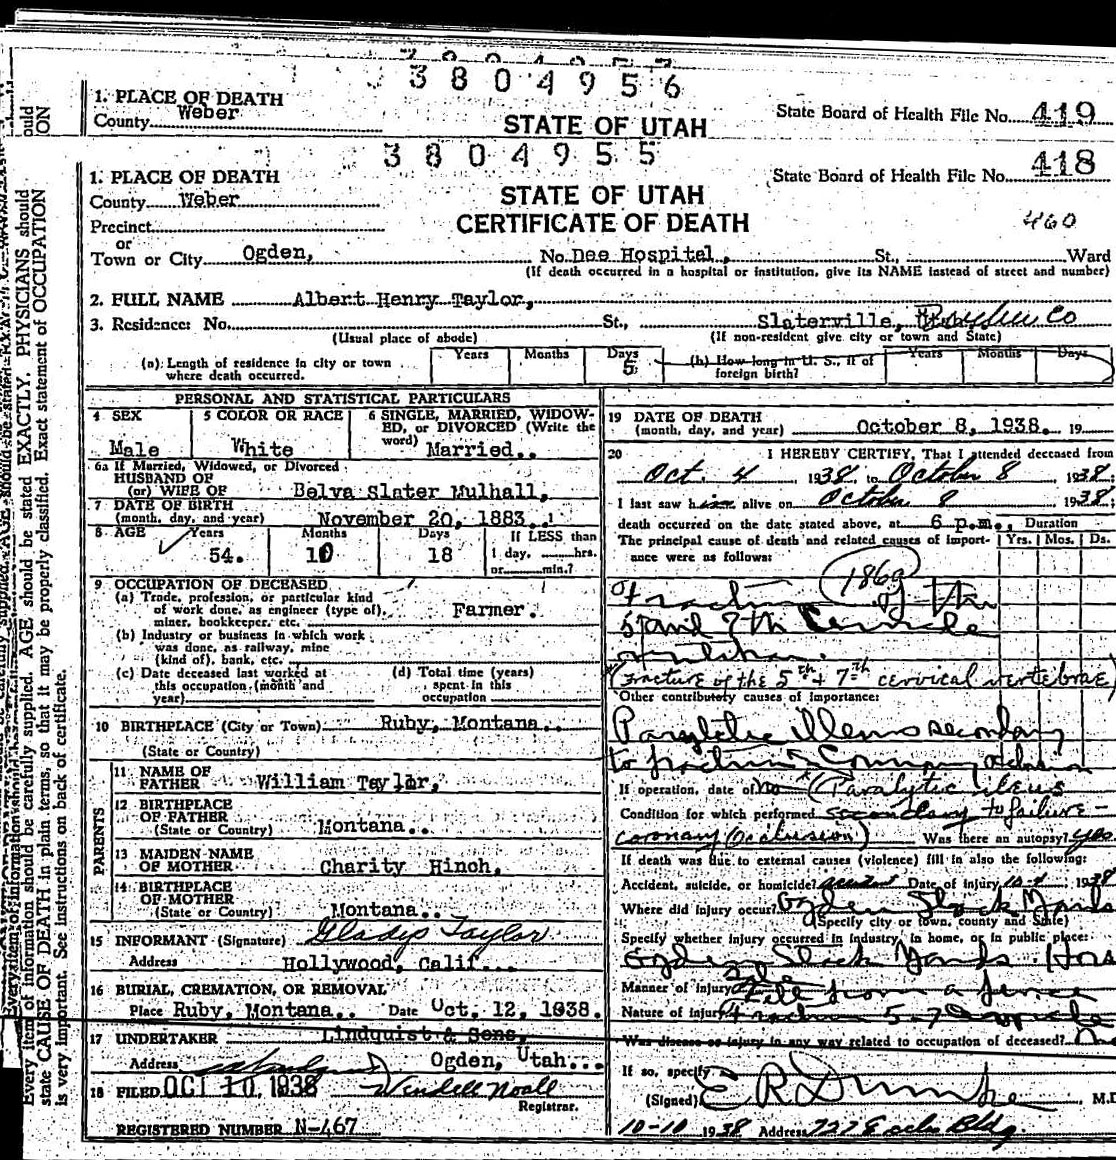 3804956
1. PLACE OF DEATH
County Weber
STATE OF UTAH
State Board of Health File No. 419
3804955
1. PLACE OF DEATH
County Weber
STATE OF UTAH
CERTIFICATE OF DEATH
State Board of Health File No. 418
460
Precinct
or
Town or City Ogden, No. Dee Hospital, St., Ward
(If death occurred in a hospital or institution, give its NAME instead of street and number)
2. FULL NAME Albert Henry Taylor,
3. Residence: No. St., Slaterville, Co
(Usual place of abode) (If non-resident give city or town and State)
(a) Length of residence in city or town where death occurred. Years Months Days 5
(b) How long in U. S., if of foreign birth? Years Months Days
PERSONAL AND STATISTICAL PARTICULARS
4 SEX Male
5 COLOR OR RACE White
6 SINGLE, MARRIED, WIDOWED, or DIVORCED (Write the word) Married..
6a If Married, Widowed, or Divorced
HUSBAND OF
(or) WIFE OF Belva Slater Mulhall,
7 DATE OF BIRTH
(month, day, and year) November 20, 1883.
8 AGE Years 54. Months 10 Days 18 If LESS than 1 day, hrs. or min.?
9 OCCUPATION OF DECEASED
(a) Trade, profession, or particular kind of work done, as engineer (type of), miner, bookkeeper, etc. Farmer.
(b) Industry or business in which work was done, as railway, mine (kind of), bank, etc.
(c) Date deceased last worked at this occupation (month and year)
(d) Total time (years) spent in this occupation
10 BIRTHPLACE (City or Town) Ruby, Montana..
(State or Country)
PARENTS
11 NAME OF FATHER William Taylor,
12 BIRTHPLACE OF FATHER
(State or Country) Montana..
13 MAIDEN NAME OF MOTHER Charity Hinch,
14 BIRTHPLACE OF MOTHER
(State or Country) Montana..
15 INFORMANT (Signature) Gladys Taylor
Address Hollywood, Calif...
16 BURIAL, CREMATION, OR REMOVAL
Place Ruby, Montana.. Date Oct. 12, 1938.
17 UNDERTAKER Lindquist & Sons,
Address Ogden, Utah...
18 FILED OCT 10 1938 Wendell Noall
Registrar.
REGISTERED NUMBER N-467
19 DATE OF DEATH
(month, day, and year) October 8, 1938. 19
20 I HEREBY CERTIFY, That I attended deceased from
Oct. 4 1938, to October 8 1938.
I last saw him alive on October 8 1938.
death occurred on the date stated above, at 6 p.m.,
Duration
Yrs. Mos. Ds.
The principal cause of death and related causes of importance were as follows:
186a
Fracture of the
5 and 7th Cervicle
(Fracture of the 5th + 7th cervical vertebrae)
Other contributory causes of importance:
Paralytic illeus secondary
to fracture Coronary
If operation, date of no (Paralytic ileus
Condition for which performed secondary to failure -
coronary occlusion) Was there an autopsy? yes.
If death was due to external causes (violence) fill in also the following:
Accident, suicide, or homicide? accident Date of injury 10-4 1938
Where did injury occur? Ogden Stock Yards
(Specify city or town, county and State)
Specify whether injury occurred in industry, in home, or in public place:
Ogden Stock Yards
Manner of injury Fell from a fence
Nature of injury Fracture 5-7
Was disease or injury in any way related to occupation of deceased?
If so, specify
(Signed) M.D
10-10 1938 Address Bldg.
Every item of information should be carefully supplied. AGE should be stated EXACTLY. PHYSICIANS should
state CAUSE OF DEATH in plain terms, so that it may be properly classified. Exact statement of OCCUPATION
is very important. See instructions on back of certificate.